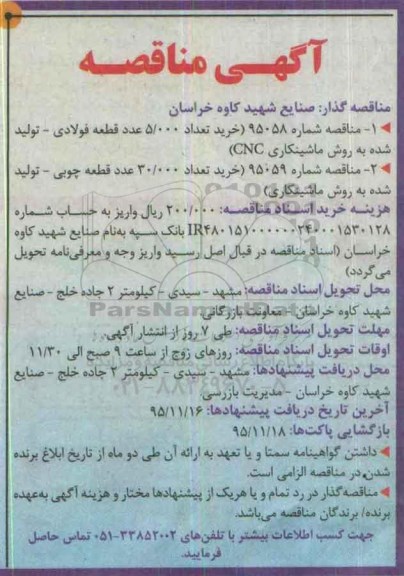 آگهـی مناقصـه
مناقصه گذار: صنایع شهید کاوه خراسان
۱- مناقصه شماره ۹۵۰۵۸ (خرید تعداد ۵/۰۰۰ عدد قطعه فولادی - تولید
شده به روش ماشینکاری CNC)
۲- مناقصه شماره ۹۵۰۵۹ (خرید تعداد ۳۰/۰۰۰ عدد قطعه چوبی - تولید
شده به روش ماشینکاری)
هزینـه خرید اسـناد مناقصـه: ۲۰۰/۰۰۰ ریال واریز به حساب شـماره
بانک سـپه به‌نام صنایع شهید کاوه
خراسـان (اسناد مناقصه در قبال اصل رسـید واریز وجه و معرفی‌نامه تحویل
می‌گردد)
محل تحویل اسناد مناقصه: مشهد - سیدی - کیلومتر ۲ جاده خلج - صنایع
شهید کاوه خراسان - معاونت بازرگانی
مهلت تحویل اسناد مناقصه: طی ۷ روز از انتشار آگهی.
اوقات تحویل اسناد مناقصه: روزهای زوج از ساعت ۹ صبح الی ۱۱/۳۰
محل دریافت پیشنهادها: مشهد - سیدی - کیلومتر ۲ جاده خلج - صنایع
شهید کاوه خراسان - مدیریت بازرسی
آخرین تاریخ دریافت پیشنهادها: ۹۵/۱۱/۱۶
بازگشایی پاکت‌ها: ۹۵/۱۱/۱۸
داشتن گواهینامه سمتا و یا تعهد به ارائه آن طی دو ماه از تاریخ ابلاغ برنده
شدن در مناقصه الزامی است.
مناقصه‌گذار در رد تمام و یا هریک از پیشنهادها مختار و هزینه آگهی به‌عهده
برنده/ برندگان مناقصه می‌باشد.
جهت کسب اطلاعات بیشتر با تلفن‌های ۳۳۸۵۲۰۰۲-۰۵۱ تماس حاصل
فرمایید.
ParsNamadData